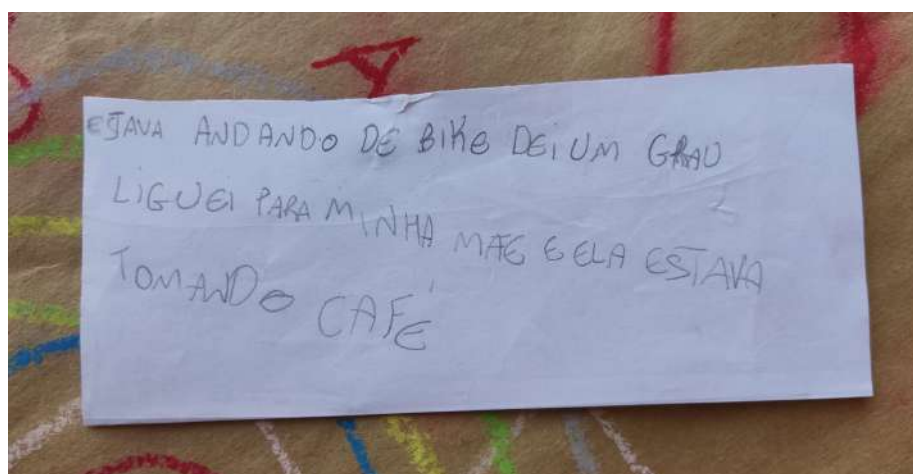 ESTAVA ANDANDO DE BIKE DEI UM GRAU
LIGUEI PARA MINHA MÃE E ELA ESTAVA
TOMANDO CAFÉ